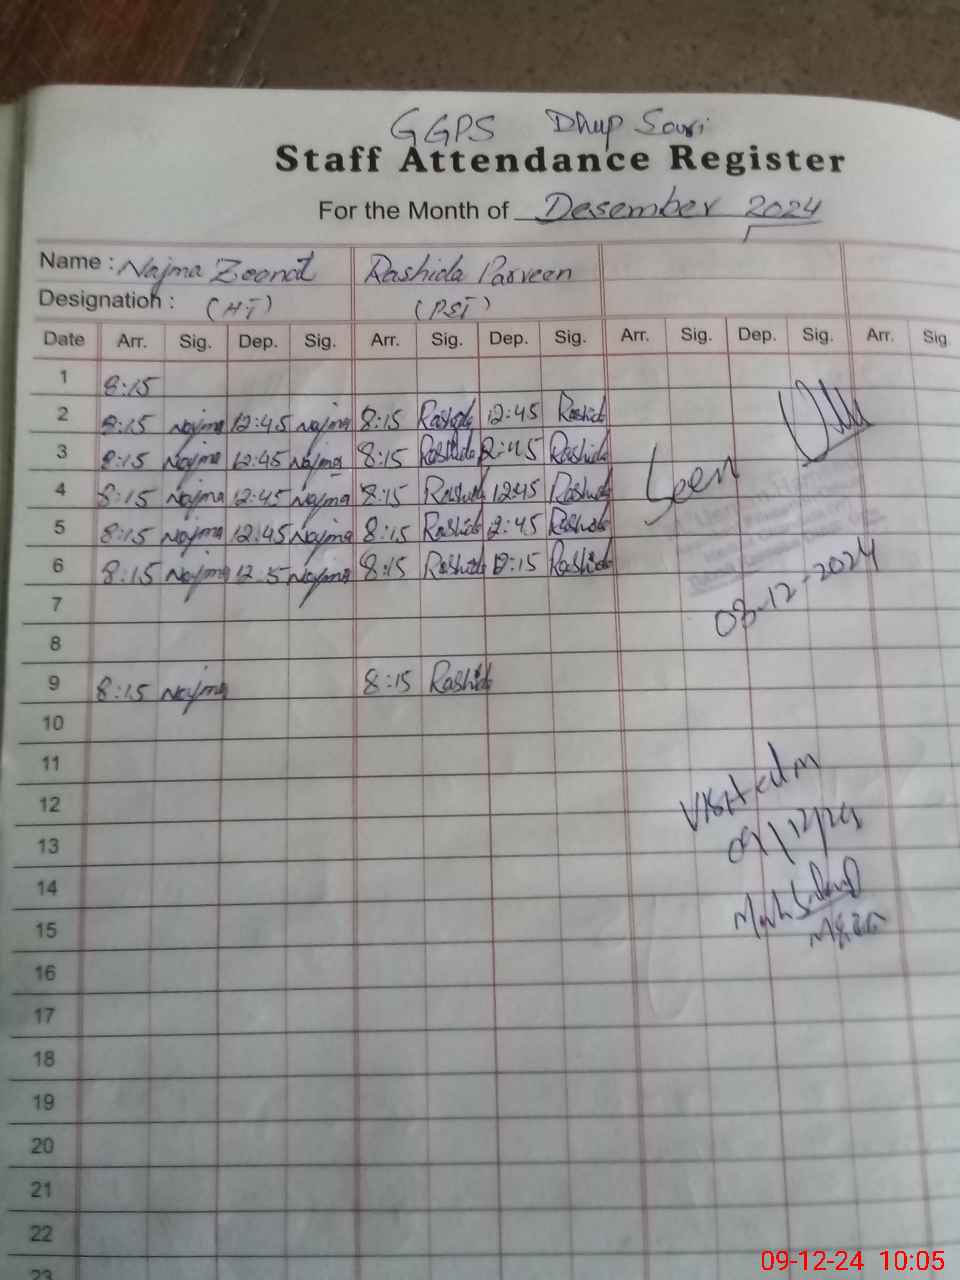 GGPS Dhup Sari
Staff Attendance Register
For the Month of Desember 2024
Name : Najma Zeenat Rashida Parveen
Designation : (HT) (PST)
Date Arr. Sig. Dep. Sig. Arr. Sig. Dep. Sig. Arr. Sig. Dep. Sig. Arr. Sig
1 8:15
2 8:15 Najma 12:45 Najma 8:15 Rashida 12:45 Rashid
3 8:15 Najma 12:45 Najma 8:15 Rashida 12:45 Rashida
4 8:15 Najma 12:45 Najma 8:15 Rashid 12:45 Rashida
5 8:15 Najma 12:45 Najma 8:15 Rashid 12:45 Rashida
6 8:15 Najma 12:15 Najma 8:15 Rashid 12:15 Rashida
Seen
03-12-2024
7
8
9 8:15 Najma 8:15 Rashid
10
11
12
13
14
15
16
17
18
19
20
21
22
23
09/12/24
09-12-24 10:05